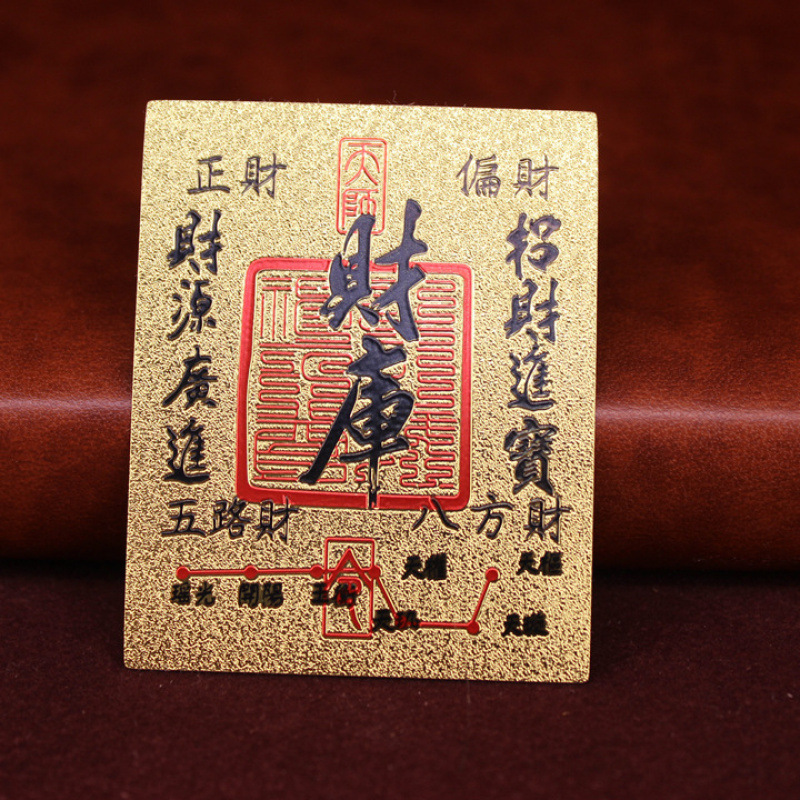 天師
正財
偏財
財庫
招財進寶
財源廣進
五路財
八方財
瑤光
開陽
玉衡
天權
天璣
天璇
天樞
令